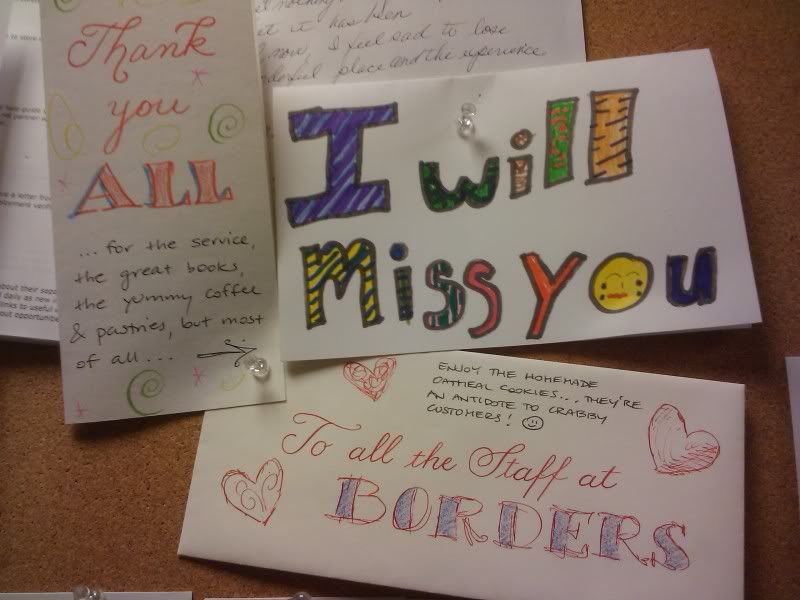 Thank
you
ALL
... for the service,
the great books,
the yummy coffee
& pastries, but most
of all...
it has been
now, I feel sad to lose
place and the experience
I will
Miss You
ENJOY THE HOMEMADE
OATMEAL COOKIES... THEY'RE
AN ANTIDOTE TO CRABBY
CUSTOMERS!
To all the Staff at
BORDERS